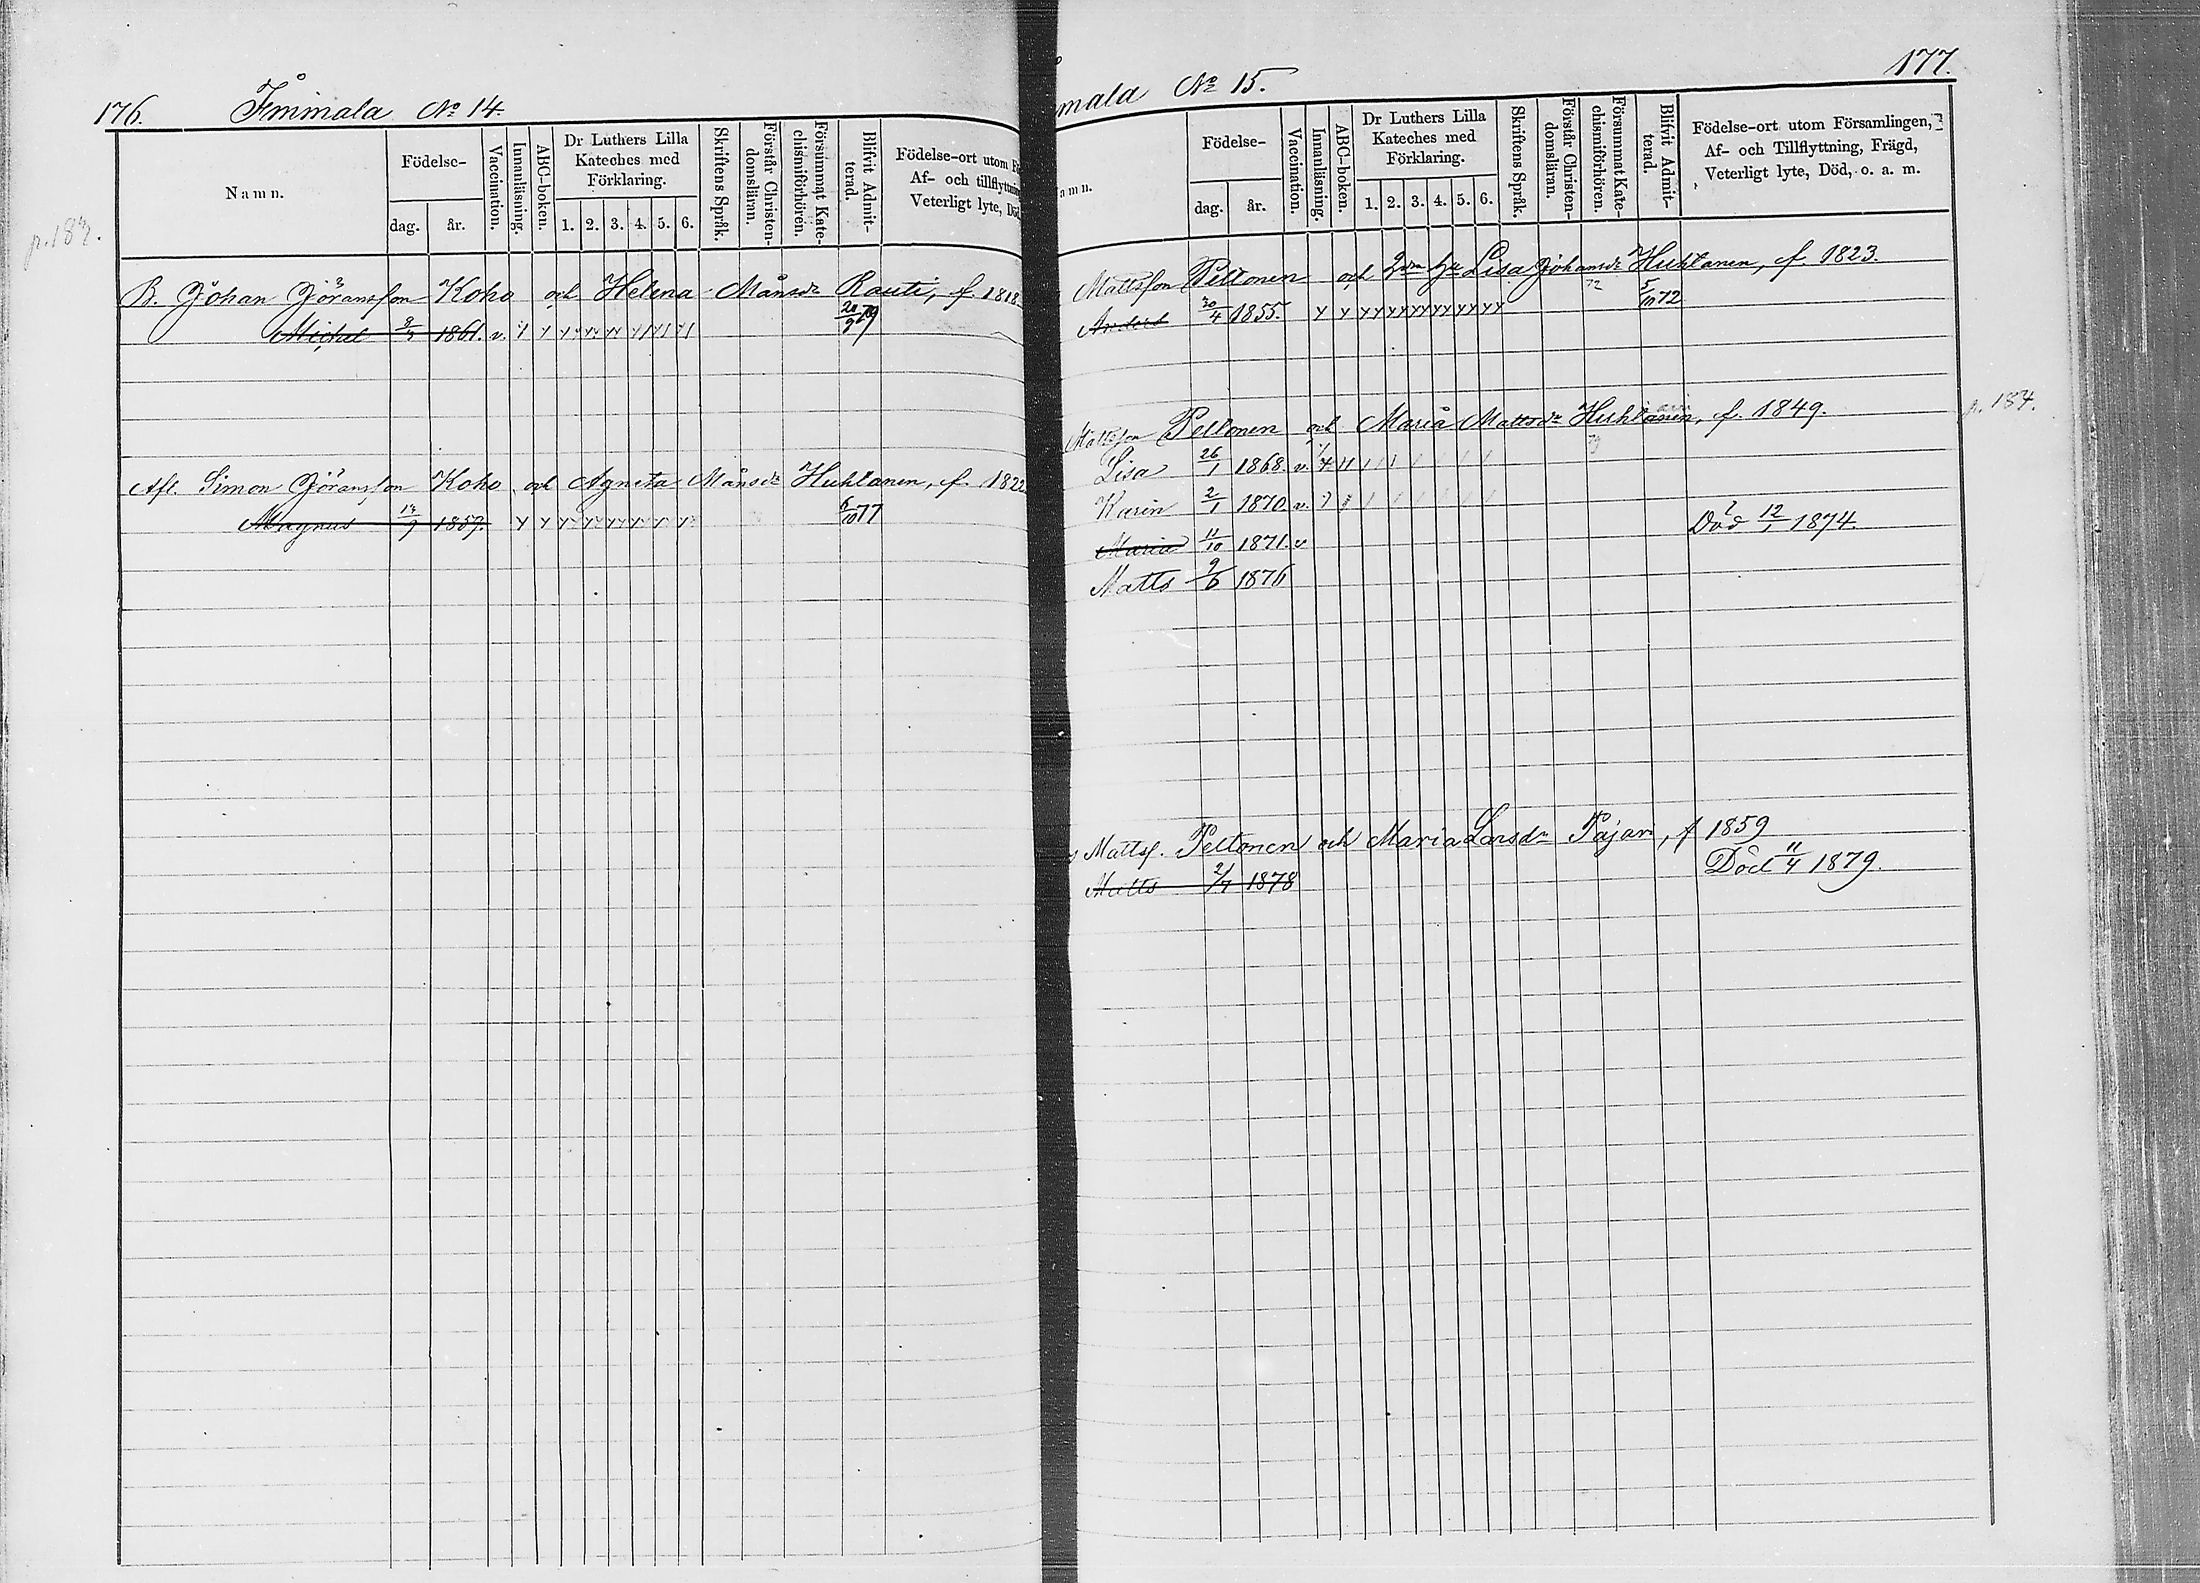 176. Immala No 14.
Namn.
Födelse-
dag.
år.
Vaccination.
Innanläsning.
ABC-boken.
Dr Luthers Lilla
Kateches med
Förklaring.
1. 2. 3. 4. 5. 6.
Skriftens Språk.
Förstår Christen-
domsläran.
Försummat Kate-
chismiförhören.
Blifvit Admit-
terad.
Födelse-ort utom
Af- och tillflyttnin
Veterligt lyte, Död
p. 187.
B. Johan Jöransson Koho och Helena Månsdr Rauti, f. 1818.
Michel 1861. v.
Afl. Simon Jöransson Koho och Agneta Månsdr Huhtanen, f. 1822
Magnus 1859. 6/10 77
177.
mala No 15.
amn.
Födelse-
dag.
år.
Vaccination.
Innanläsning.
ABC-boken.
Dr Luthers Lilla
Kateches med
Förklaring.
1. 2. 3. 4. 5. 6.
Skriftens Språk.
Förstår Christen-
domsläran.
Försummat Kate-
chismiförhören.
Blifvit Admit-
terad.
Födelse-ort utom Församlingen,
Af- och Tillflyttning, Frägd,
Veterligt lyte, Död, o. a. m.
Mattsson Peltonen och 2dra h. Lisa Johansdr Huhtanen, f. 1823.
Anders 30/4 1855. 72 5/10 72
p. 187.
Mattsson Peltonen och Maria Mattsdr Huhtanen, f. 1849.
Lisa 26/1 1868. v.
Karin 2/1 1870. v.
Maria 11/10 1871. v Död 12/1 1874.
Matts 9/6 1876
Mattss. Peltonen och Maria Larsdr Pajari, f 1859
Matts 2/7 1878 Död 11/4 1879.